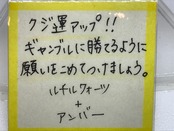 クジ運アップ!!
ギャンブルに勝てるように
願いをこめてつけましょう。
ルチルクォーツ
+
アンバー